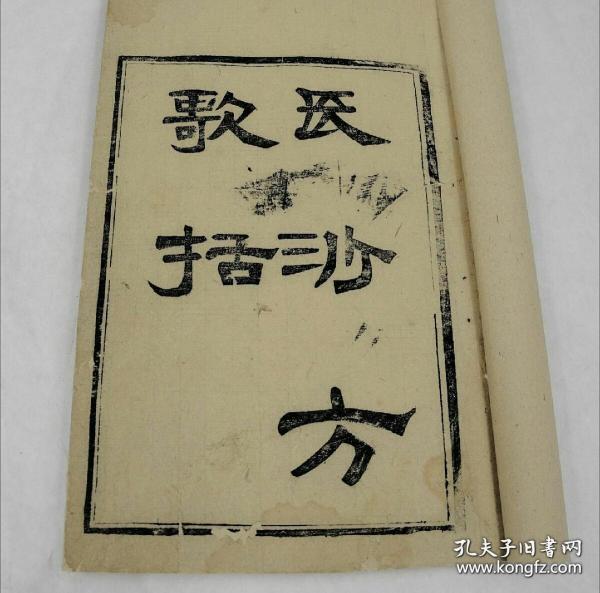 長沙方
歌括
孔夫子旧書网
www.kongfz.com